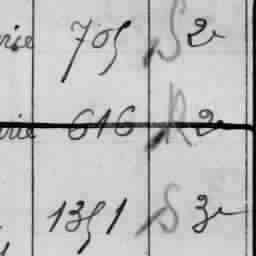 rie 705 S 2
rie 616 R 2
1351 S 3